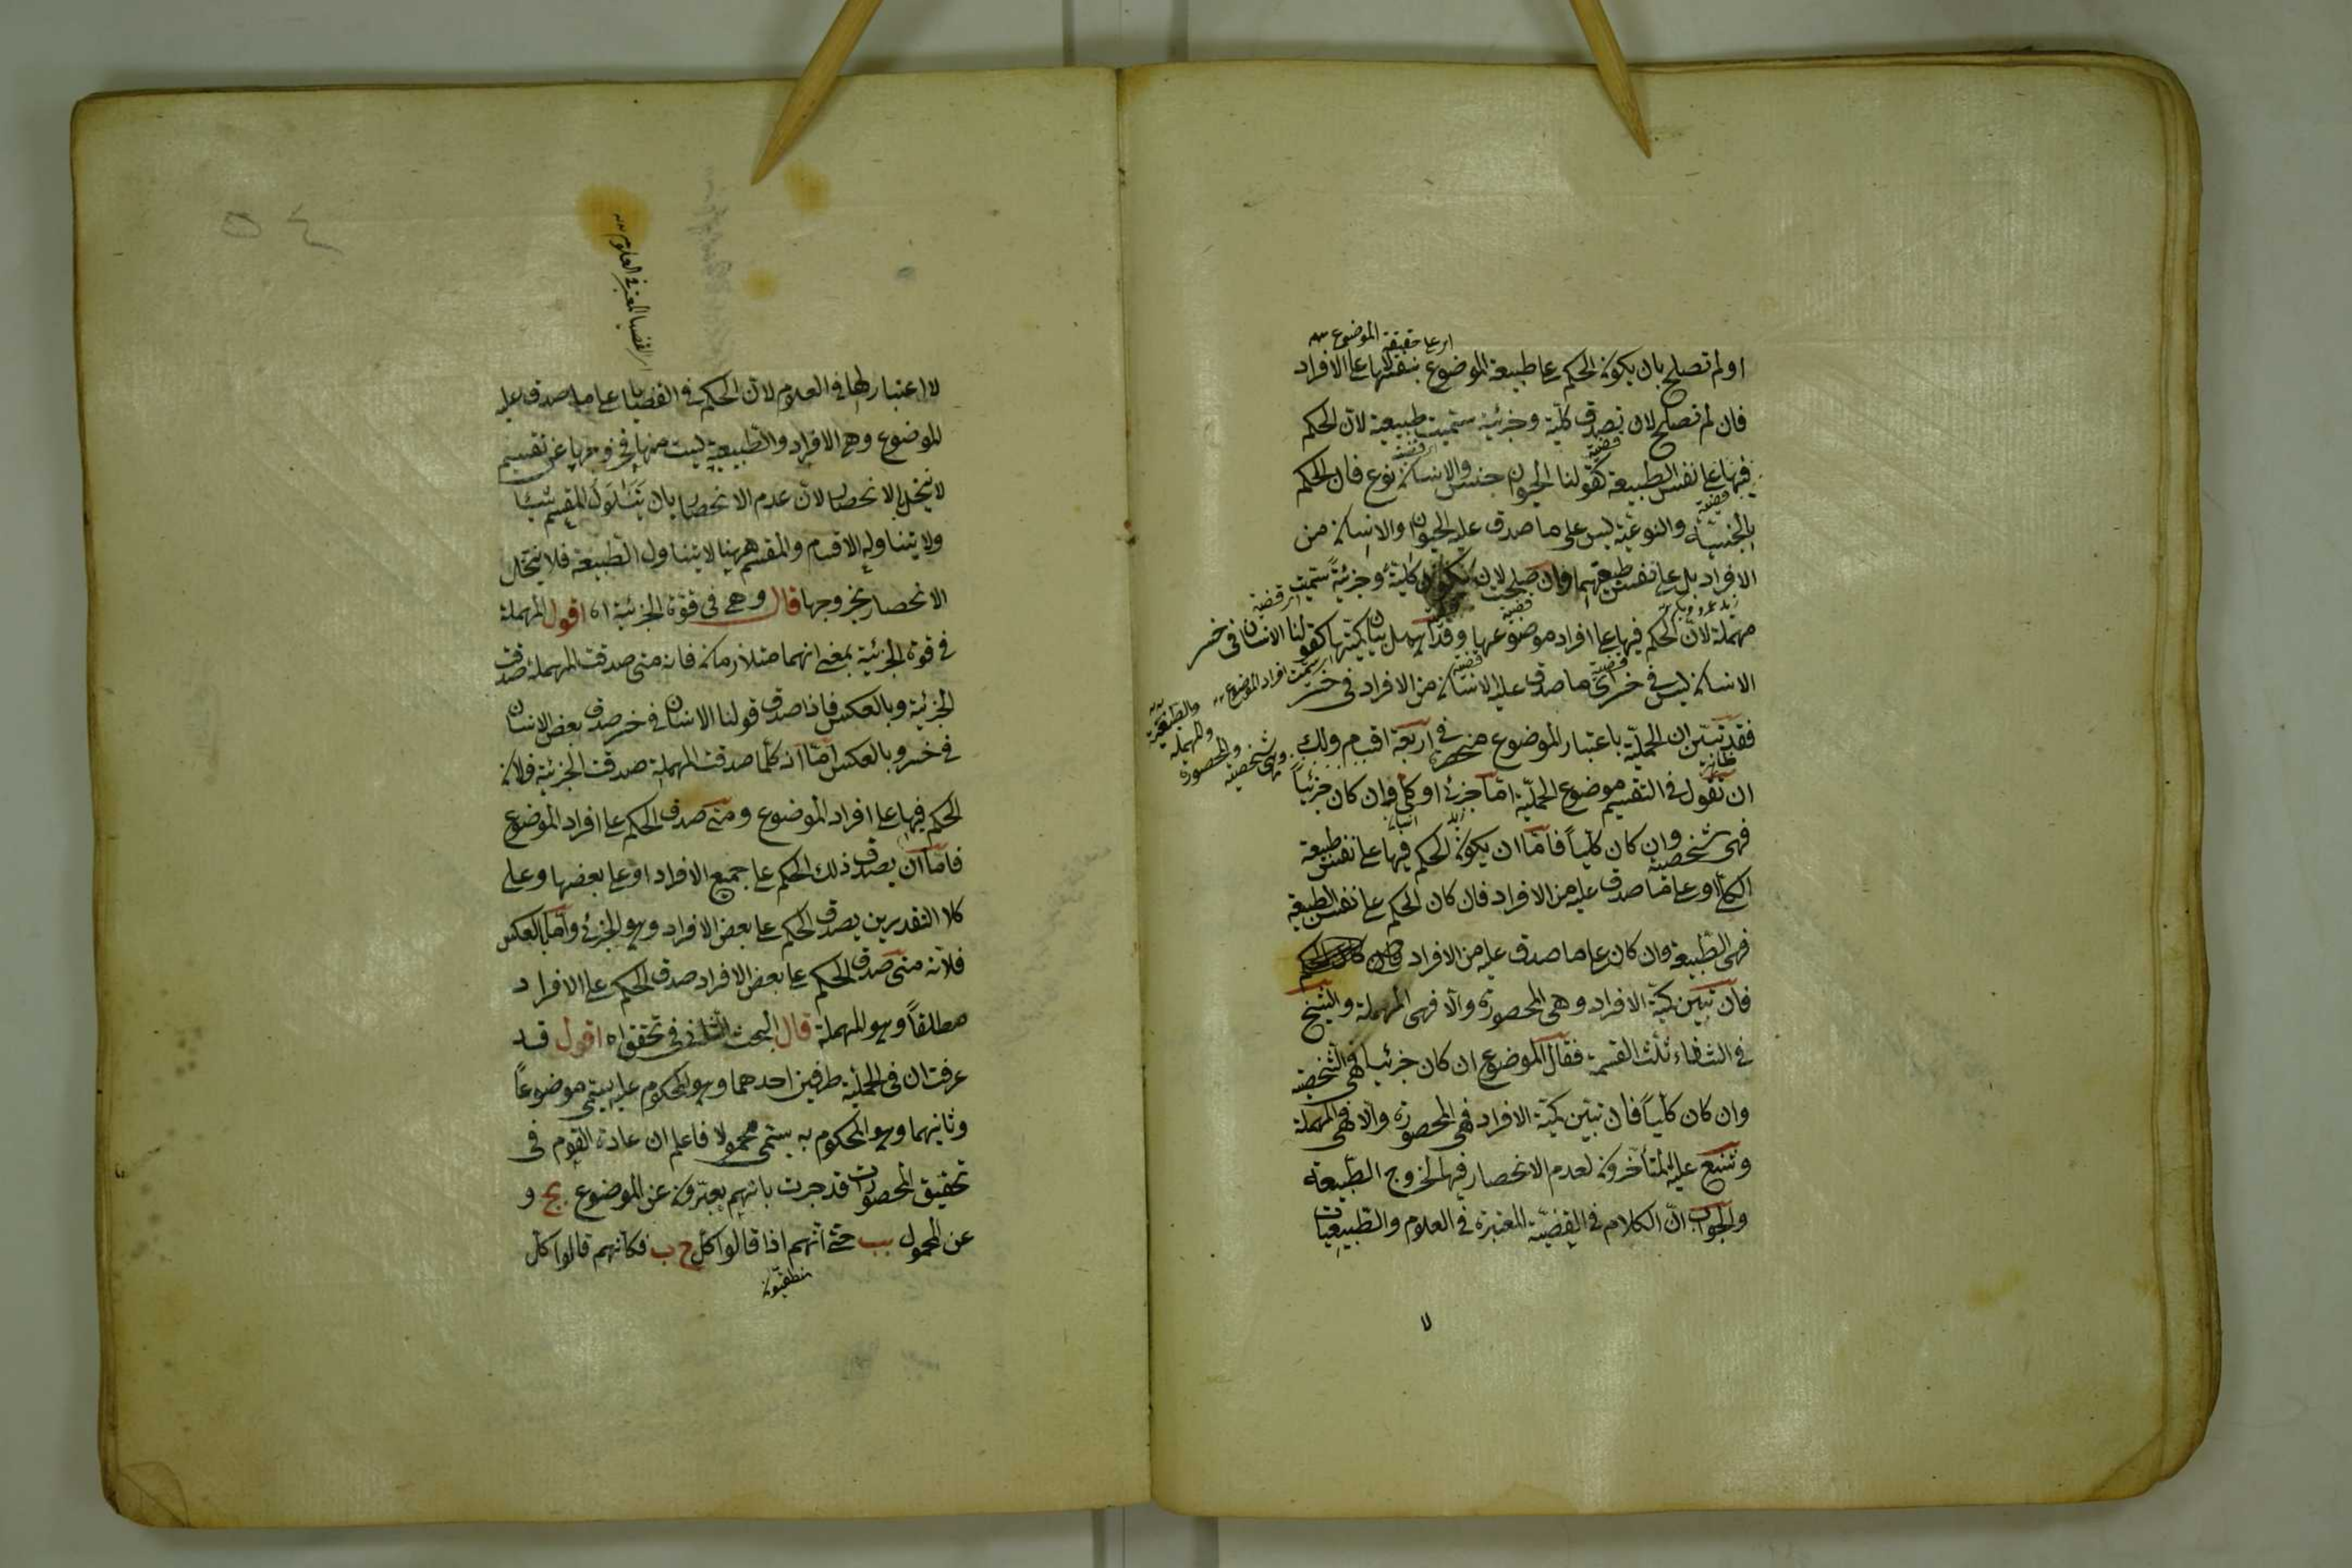 اى على حقيقة الموضوع
او لم تصلح بان يكون الحكم على طبيعة الموضوع بنفسها لا على الافراد
فان لم تصلح لان تصدق كلية وجزئية سميت طبيعية لان الحكم
فيها على نفس الطبيعة كقولنا الحيوان جنس والانسان نوع فان الحكم
بالجنسية والنوعية ليس على ما صدق عليه الحيوان والانسان من
الافراد بل على نفس طبيعتهما وان صلحت لان تكون كلية وجزئية سميت
مهملة لان الحكم فيها على افراد موضوعها وقد اهمل بيان كميتها كقولنا الانسان فى خسر
الانسان ليس فى خسر اى ما صدق عليه الانسان من الافراد فى خسر
فقد تبين ان الحملية باعتبار الموضوع منحصرة فى اربعة اقسام ولك
وهى شخصية والمحصورة والمهملة والطبيعية
ان تقول فى التقسيم موضوع الحملية اما جزئى او كلى وان كان جزئيا
فهى شخصية وان كان كليا فاما ان يكون الحكم فيها على نفس طبيعة
الكلى او على ما صدق عليه من الافراد فان كان الحكم على نفس الطبيعة
فهى الطبيعة وان كان على ما صدق عليه من الافراد
فان تبين كمية الافراد وهى المحصورة والا فهى المهملة والشيخ
فى الشفاء ثلث القسمة فقال الموضوع ان كان جزئيا فهى الشخصية
وان كان كليا فان تبين كمية الافراد فهى المحصورة والا فهى المهملة
وشنع عليه المتأخرون لعدم الانحصار فيها لخروج الطبيعة
والجواب ان الكلام فى القضية المعتبرة فى العلوم والطبيعيات
لا
اى القضايا المعتبر فى العلوم
لا اعتبار لها فى العلوم لان الحكم فى القضايا على ما صدق عليه
الموضوع وهى الافراد والطبيعية ليست منها فخروجها عن تقسيم
لا يخل بالانحصار لان عدم الانحصار بان يتناول المقسم شيئا
ولا يتناوله الاقسام والمقسم ههنا لا يتناول الطبيعة فلا يختل
الانحصار بخروجها قال وهى فى قوة الجزئية اه اقول المهملة
فى قوة الجزئية بمعنى انهما متلازمان فانه متى صدقت المهملة صدقت
الجزئية وبالعكس فاذا صدق قولنا الانسان فى خسر صدق بعض الانسان
فى خسر وبالعكس اما انه كلما صدقت المهملة صدقت الجزئية فلان
الحكم فيها على افراد الموضوع ومتى صدق الحكم على افراد الموضوع
فاما ان يصدق ذلك الحكم على جميع الافراد او على بعضها وعلى
كلا التقديرين يصدق الحكم على بعض الافراد وهو الجزئى واما بالعكس
فلانه متى صدق الحكم على بعض الافراد صدق الحكم على الافراد
مطلقا وهو المهملة قال البحث الثانى فى تحقق اه اقول قد
عرفت ان فى الحملية طرفين احدهما وهو المحكوم عليه يسمى موضوعا
وثانيهما وهو المحكوم به يسمى محمولا فاعلم ان عادة القوم فى
تحقيق المحصورات قد جرت بانهم يعبرون عن الموضوع بج و
عن المحمول بب حتى انهم اذا قالوا كل ج ب فكانهم قالوا كل
منطقيون